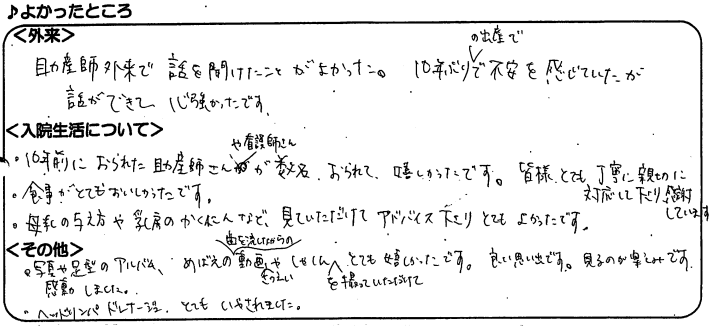 ♪よかったところ
<外来>
の出産で
助産師外来で 話を聞けたことがよかった。 10年ぶりで不安を感じていたが
話ができて、心強かったです。
<入院生活について>
や看護師さん
・10年前におられた助産師さんが数名、おられて、嬉しかったです。皆様、とても丁寧に親切に
対応して下さり、感謝しています
・食事がとてもおいしかったです。
・母乳の与え方や乳房のかくにんなど、見ていただけてアドバイス下さりとてもよかったです。
<その他>
曲を流しながらの
・写真や足型のアルバム、めばえの動画やしゃしんとても嬉しかったです。良い思い出です。見るのが楽しみです。
を撮っていただけて
感動しました。
・ヘッドリンパドレナージュ、とてもいやされました。